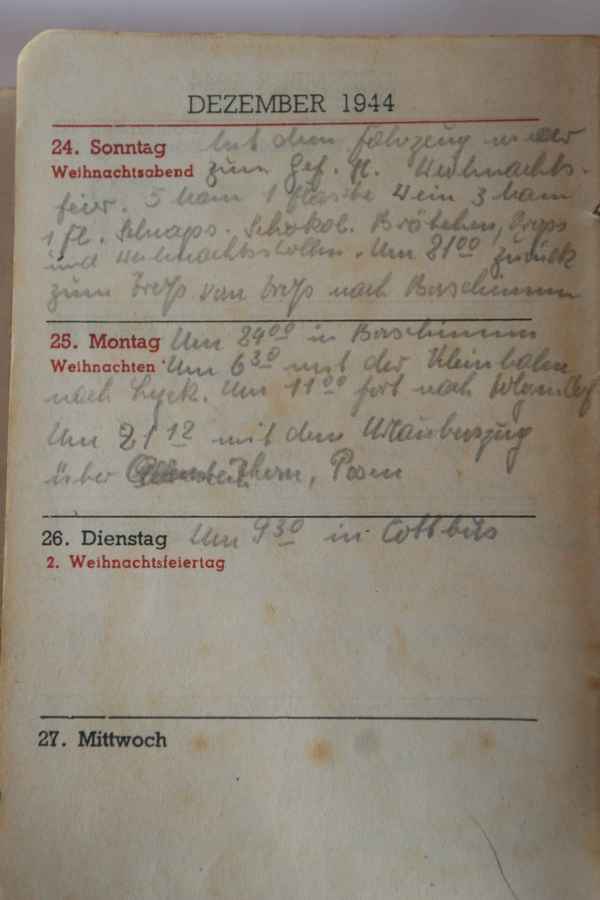 DEZEMBER 1944
24. Sonntag Mit dem Fahrzeug wieder
Weihnachtsabend zum Gef. St. Weihnachts-
feier. 5 Mann 1 Flasche Wein 3 Mann
1 Fl. Schnaps. Schokol. Brötchen, Drops
und Weihnachtsstollen. Um 21 00 zurück
zum Troß von Troß nach
25. Montag Um 24 00 in
Weihnachten Um 6 30 mit der Kleinbahn
nach Lyck. Um 11 00 fort nach
Um 21 12 mit dem Urlauberzug
über Thorn, Posen
26. Dienstag Um 9 30 in Cottbus
2. Weihnachtsfeiertag
27. Mittwoch